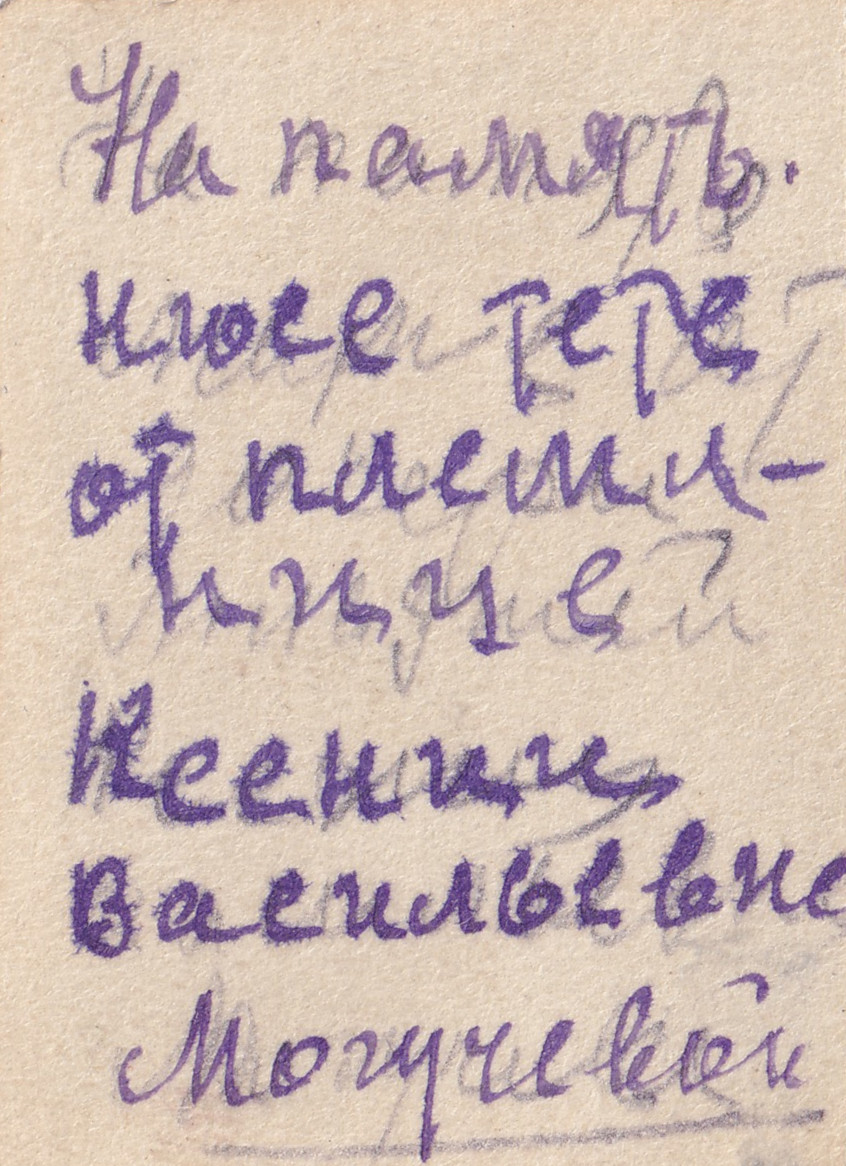 На память.
нюсе тете
от племя-
нице
Ксении
Васильевне
Могучевой